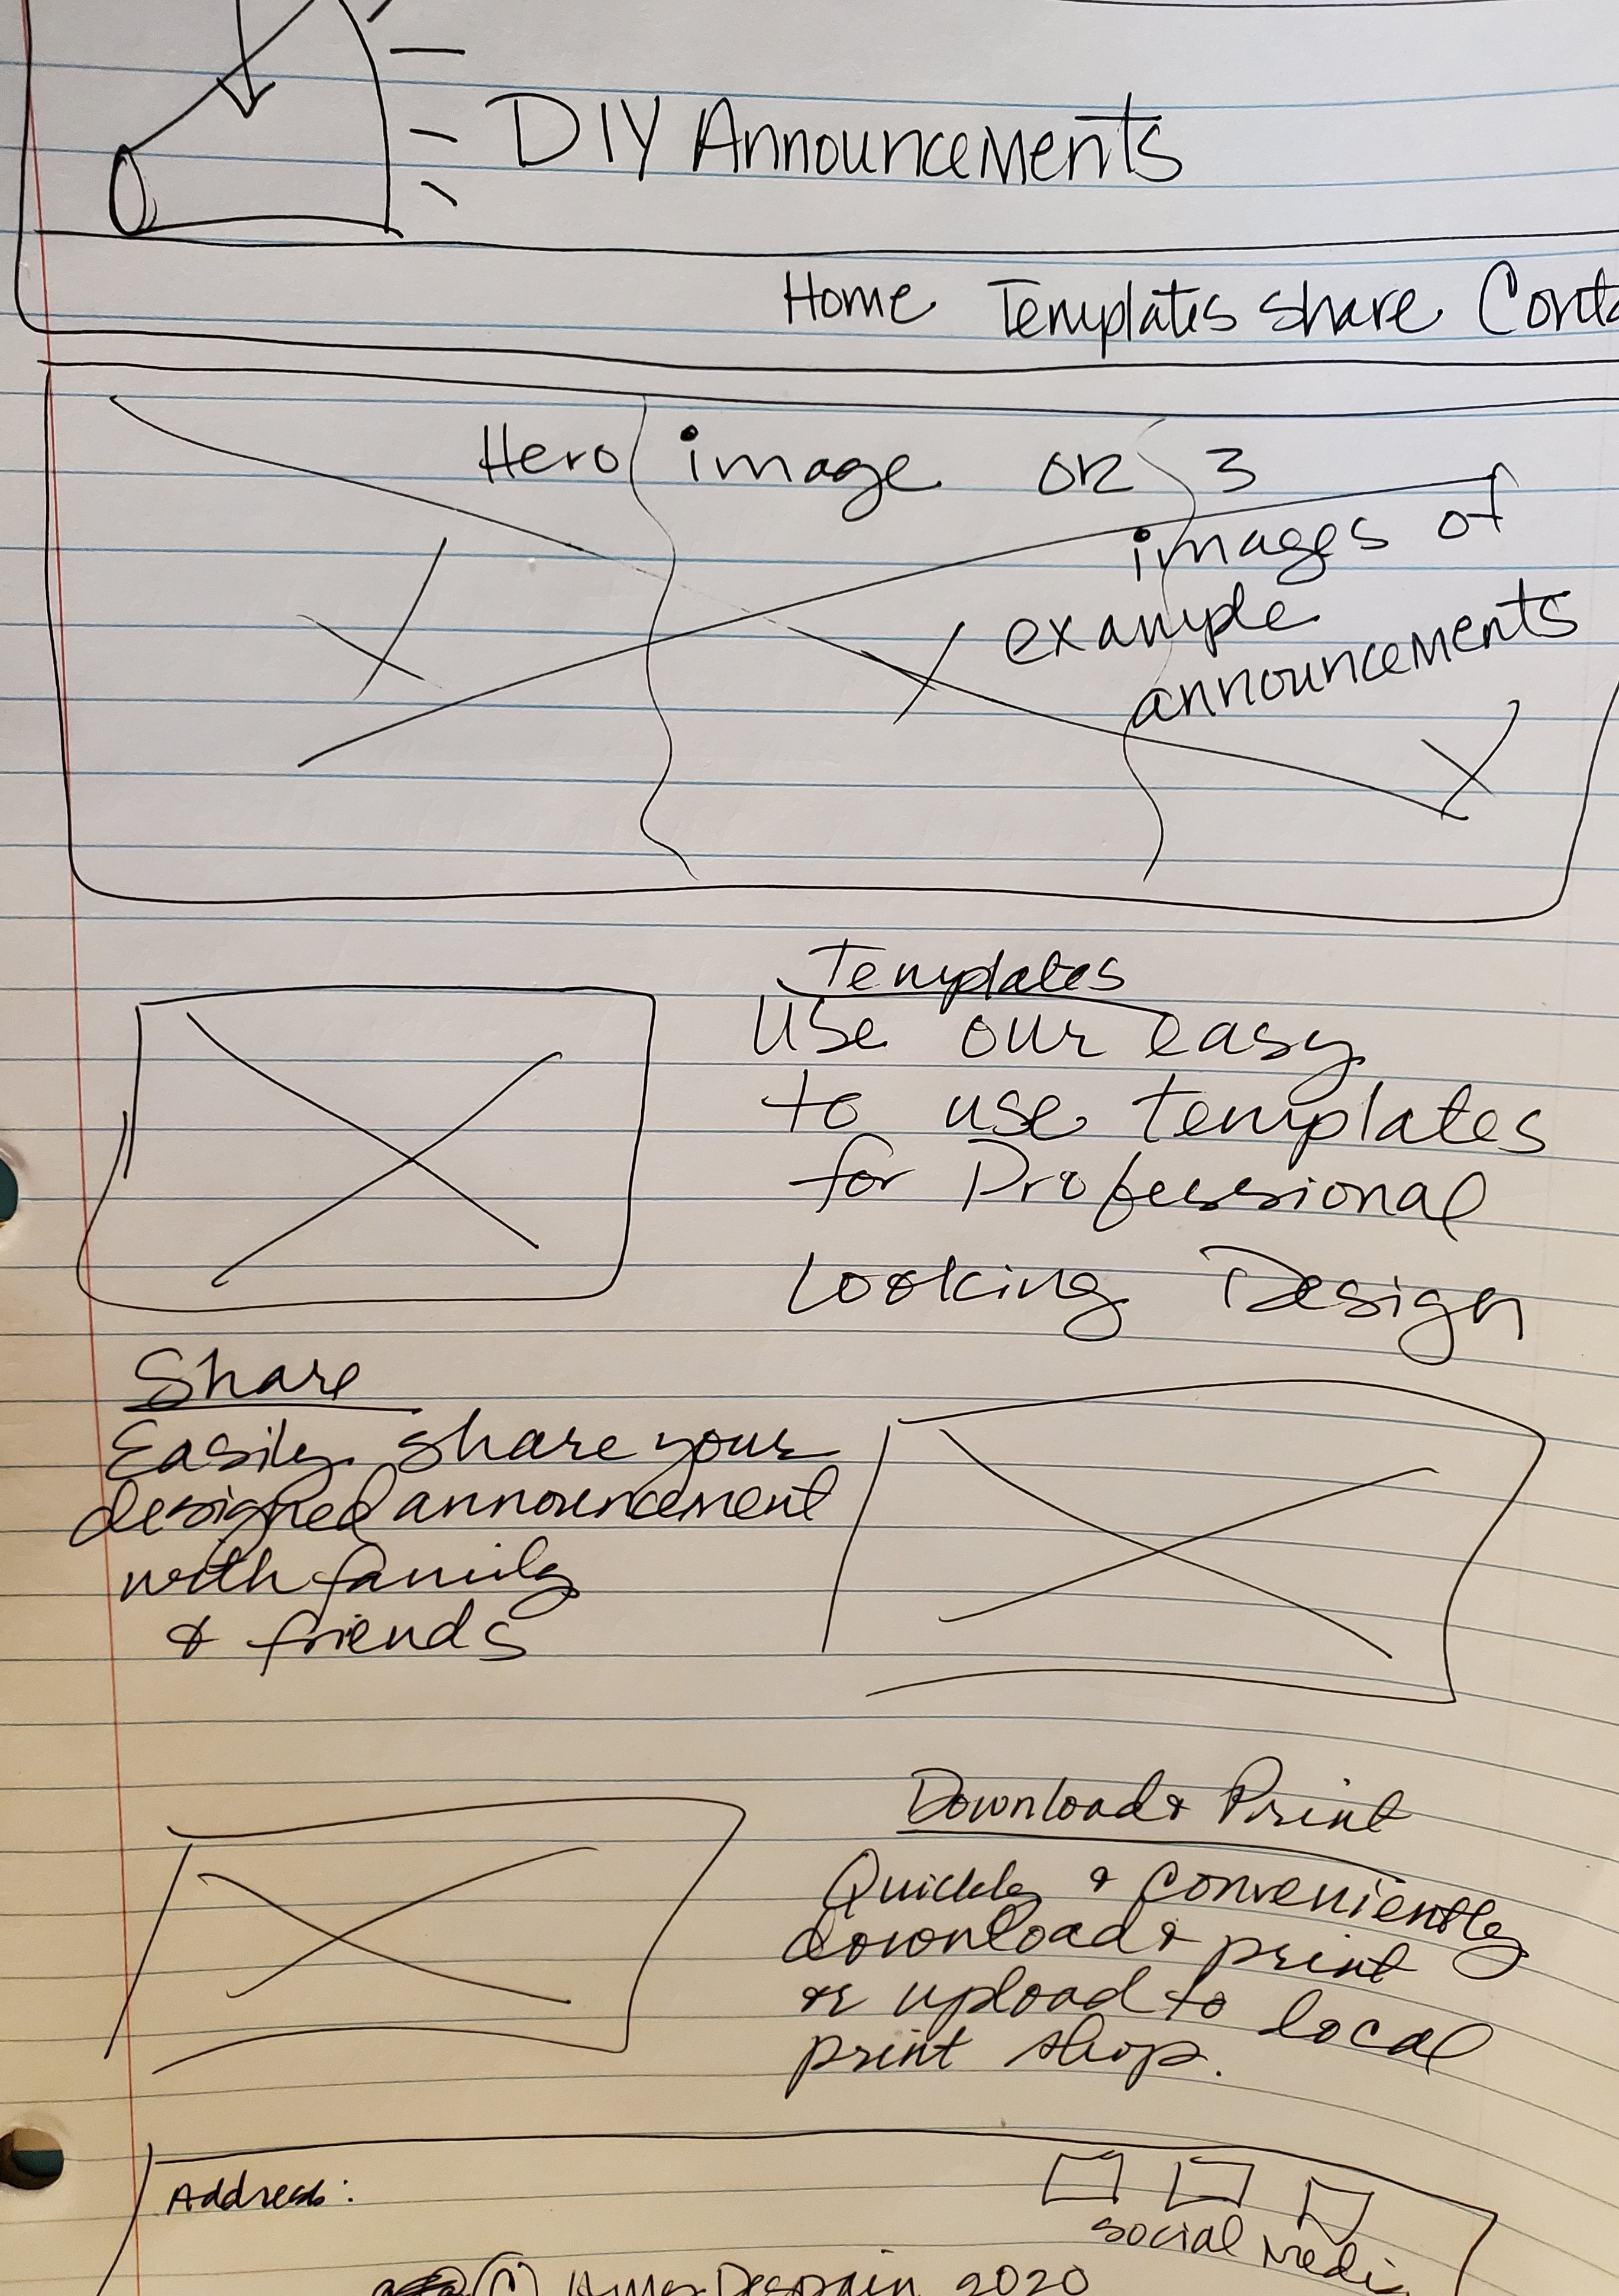 DIY Announcements
Home Templates Share Conta
Hero image or 3
images of
example
announcements
Templates
Use our easy
to use templates
for Professional
Looking Design
Share
Easily share your
designed announcement
with family
& friends
Download & Print
Quickly & conveniently
download & print
or upload to local
print shop.
Address:
social Media
(C) Despain 2020